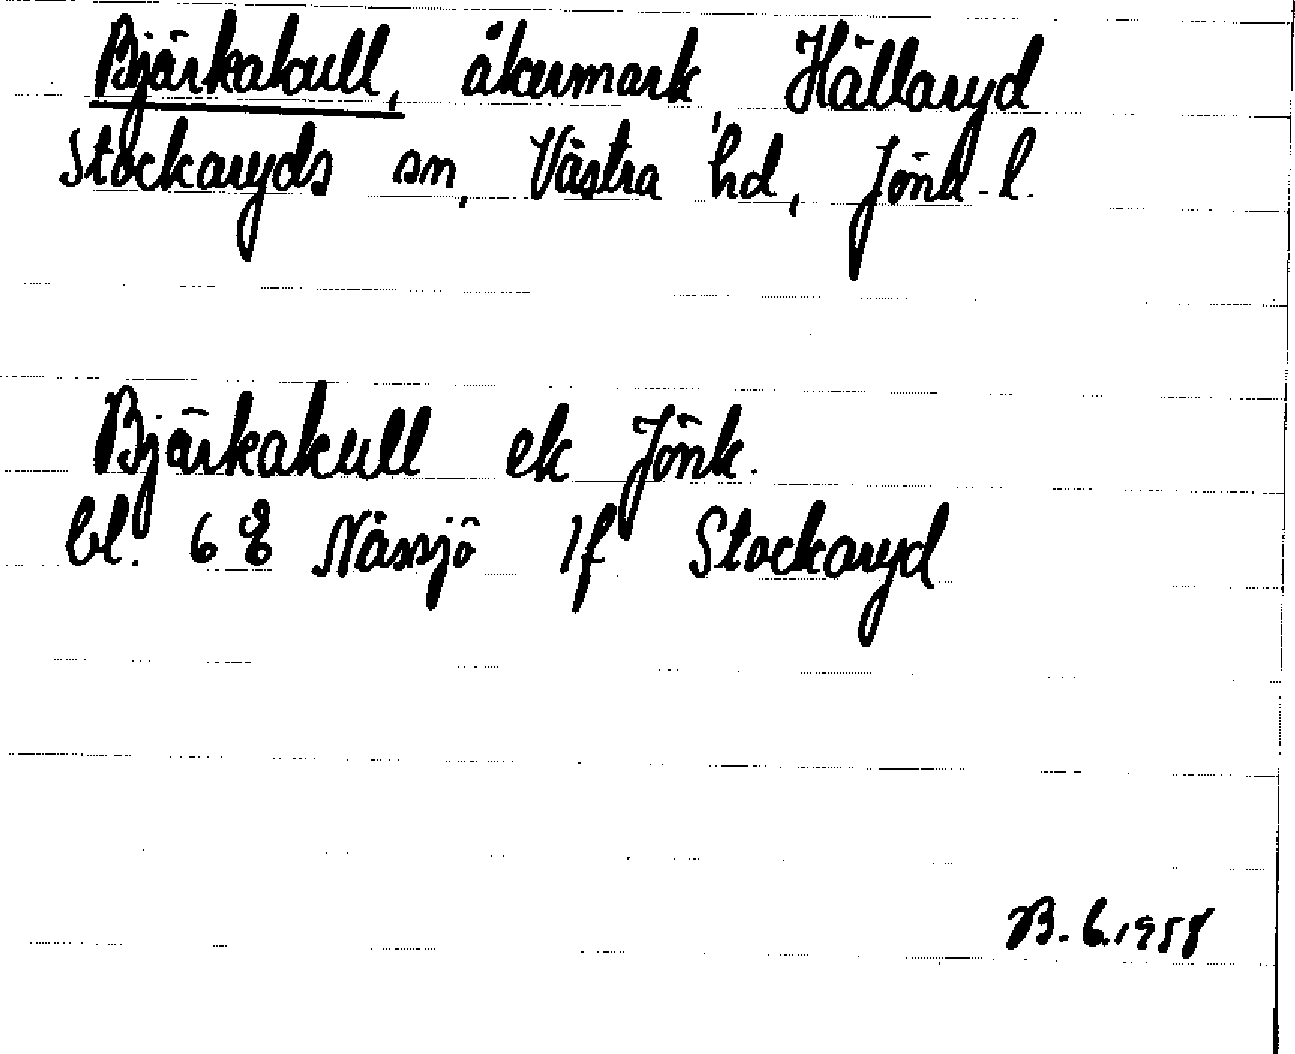 Bjärkakull, åkermark, Hällaryd
Stockaryds sn, Västra hd, Jönk. l.
Bjärkakull ek Jönk.
bl. 6 E Nässjö 1f Stockaryd
B. 6.1958